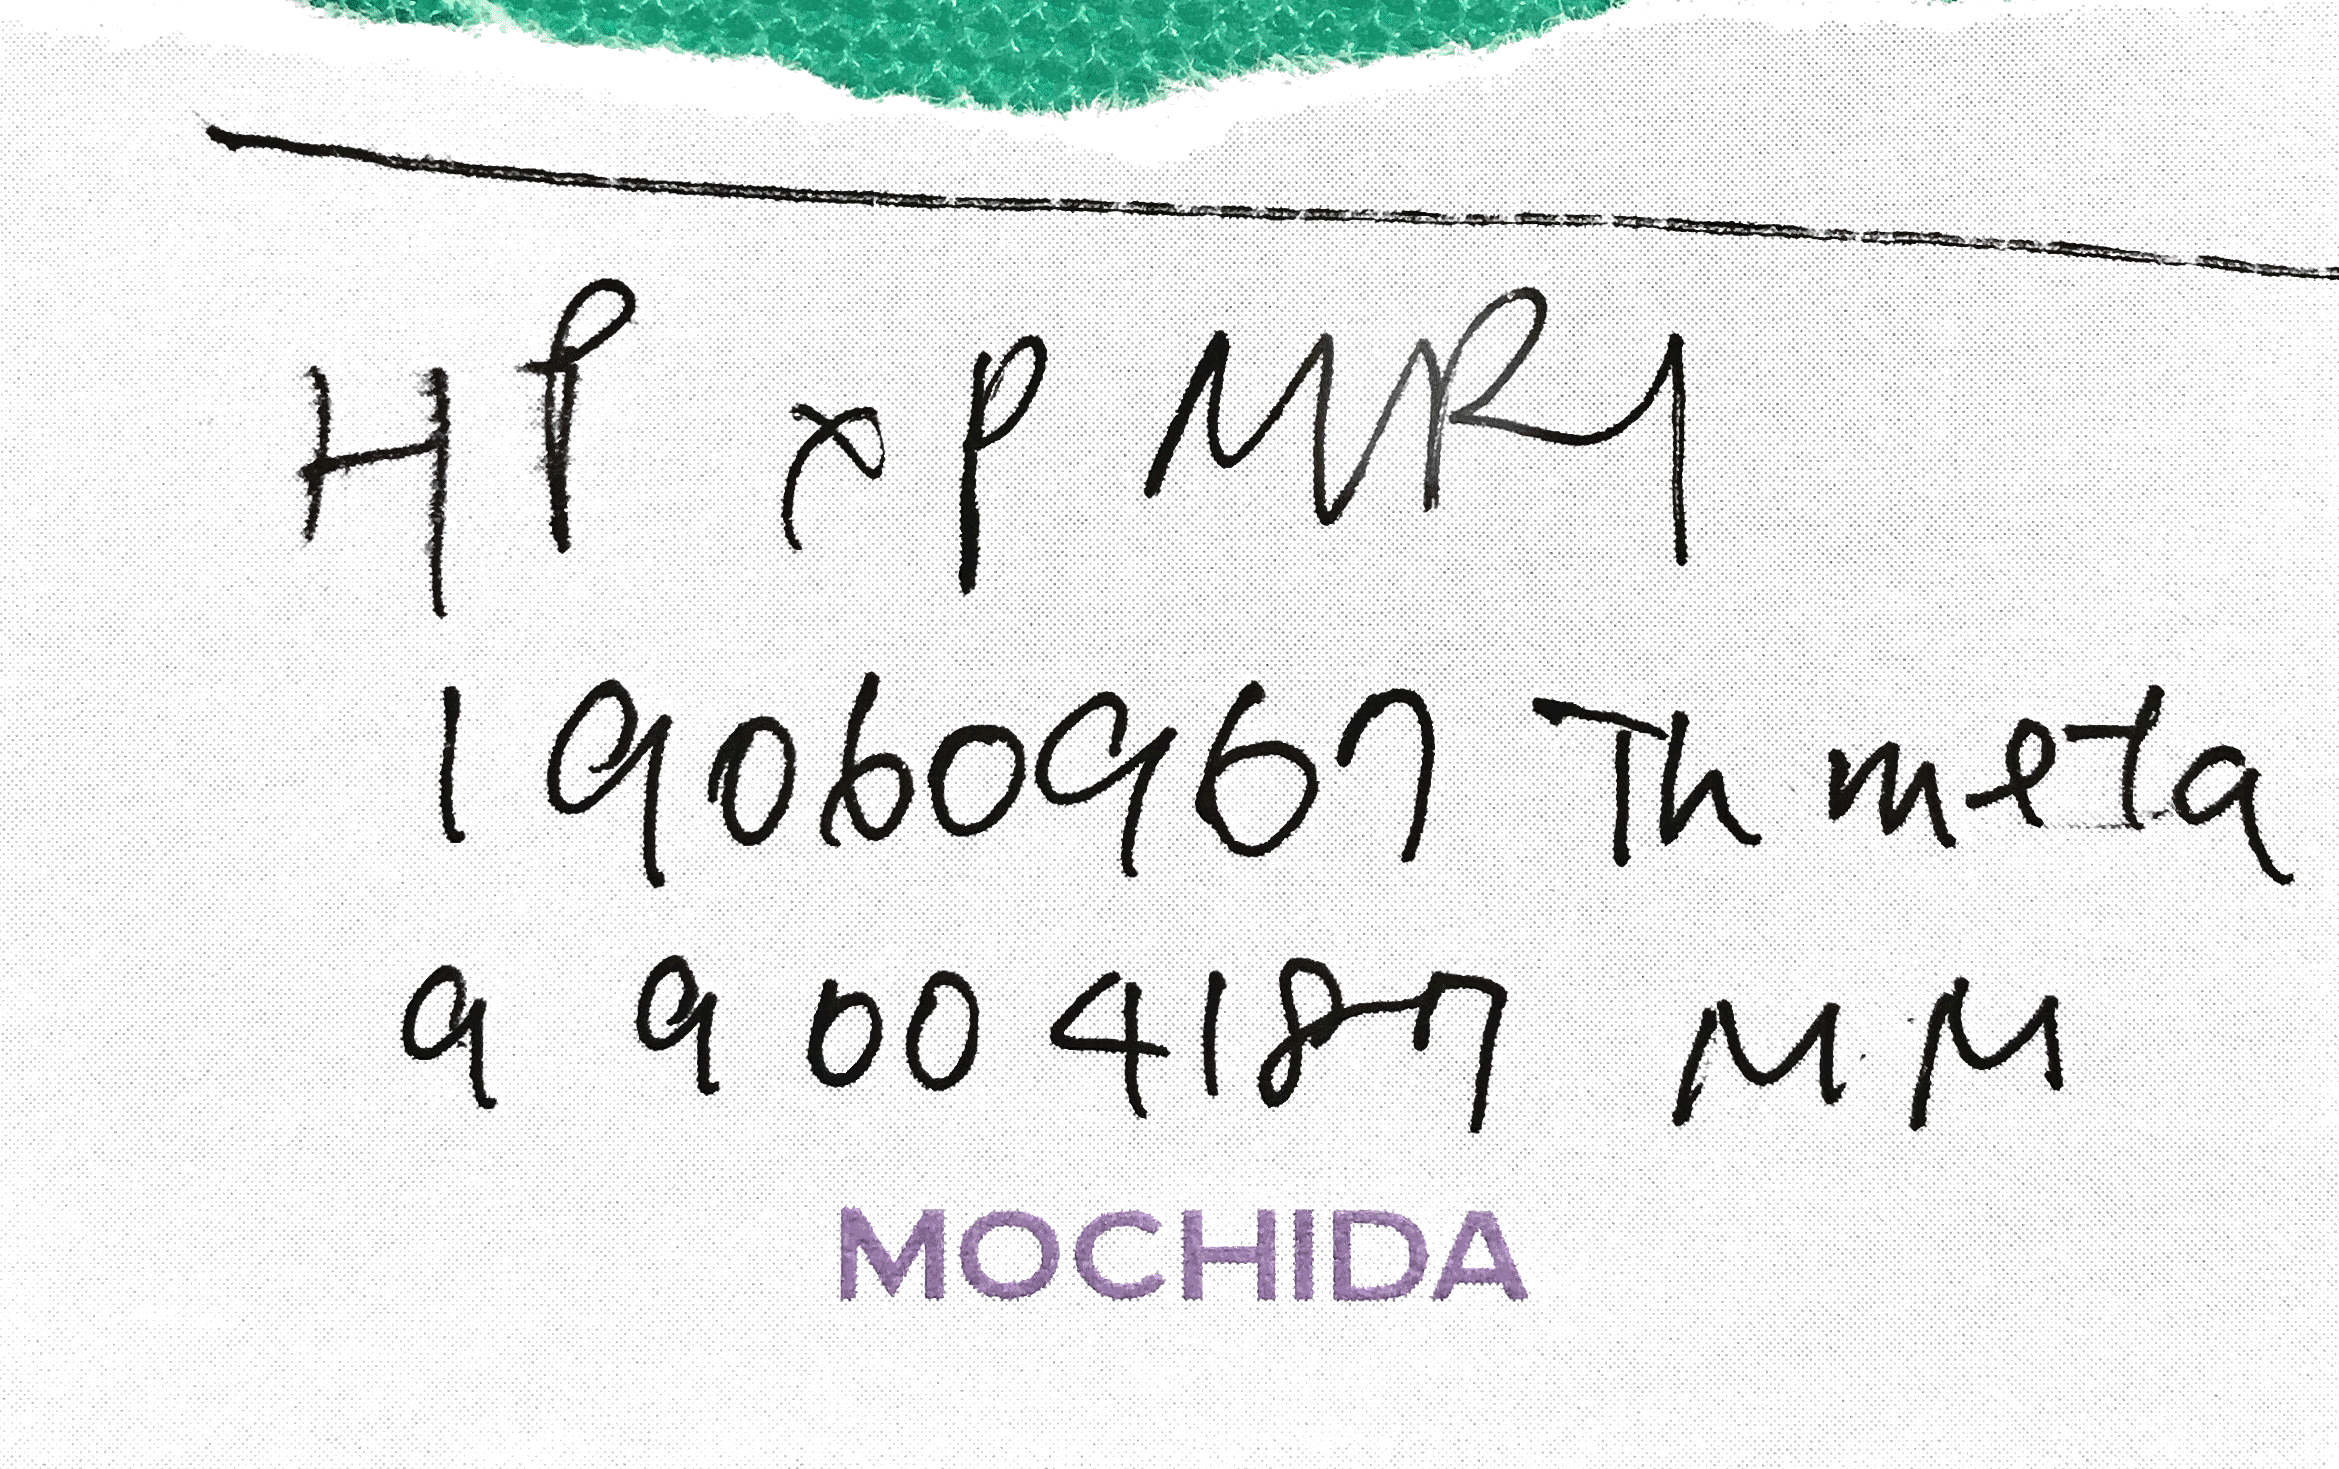 HP xp MRI
1 9060967 Th meta
9 9004187 MM
MOCHIDA